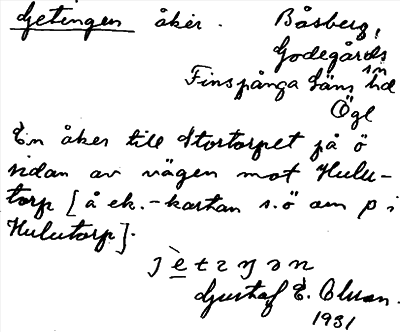 Getingen åker. Båsberg,
Godegårds
sn
Finspånga läns hd
Ögl
En åker till Stortorpet på ö
sidan av vägen mot Hulu-
torp [å ek.-kartan s.ö om p i
Hulutorp].
Gustaf E. Olsson.
1931